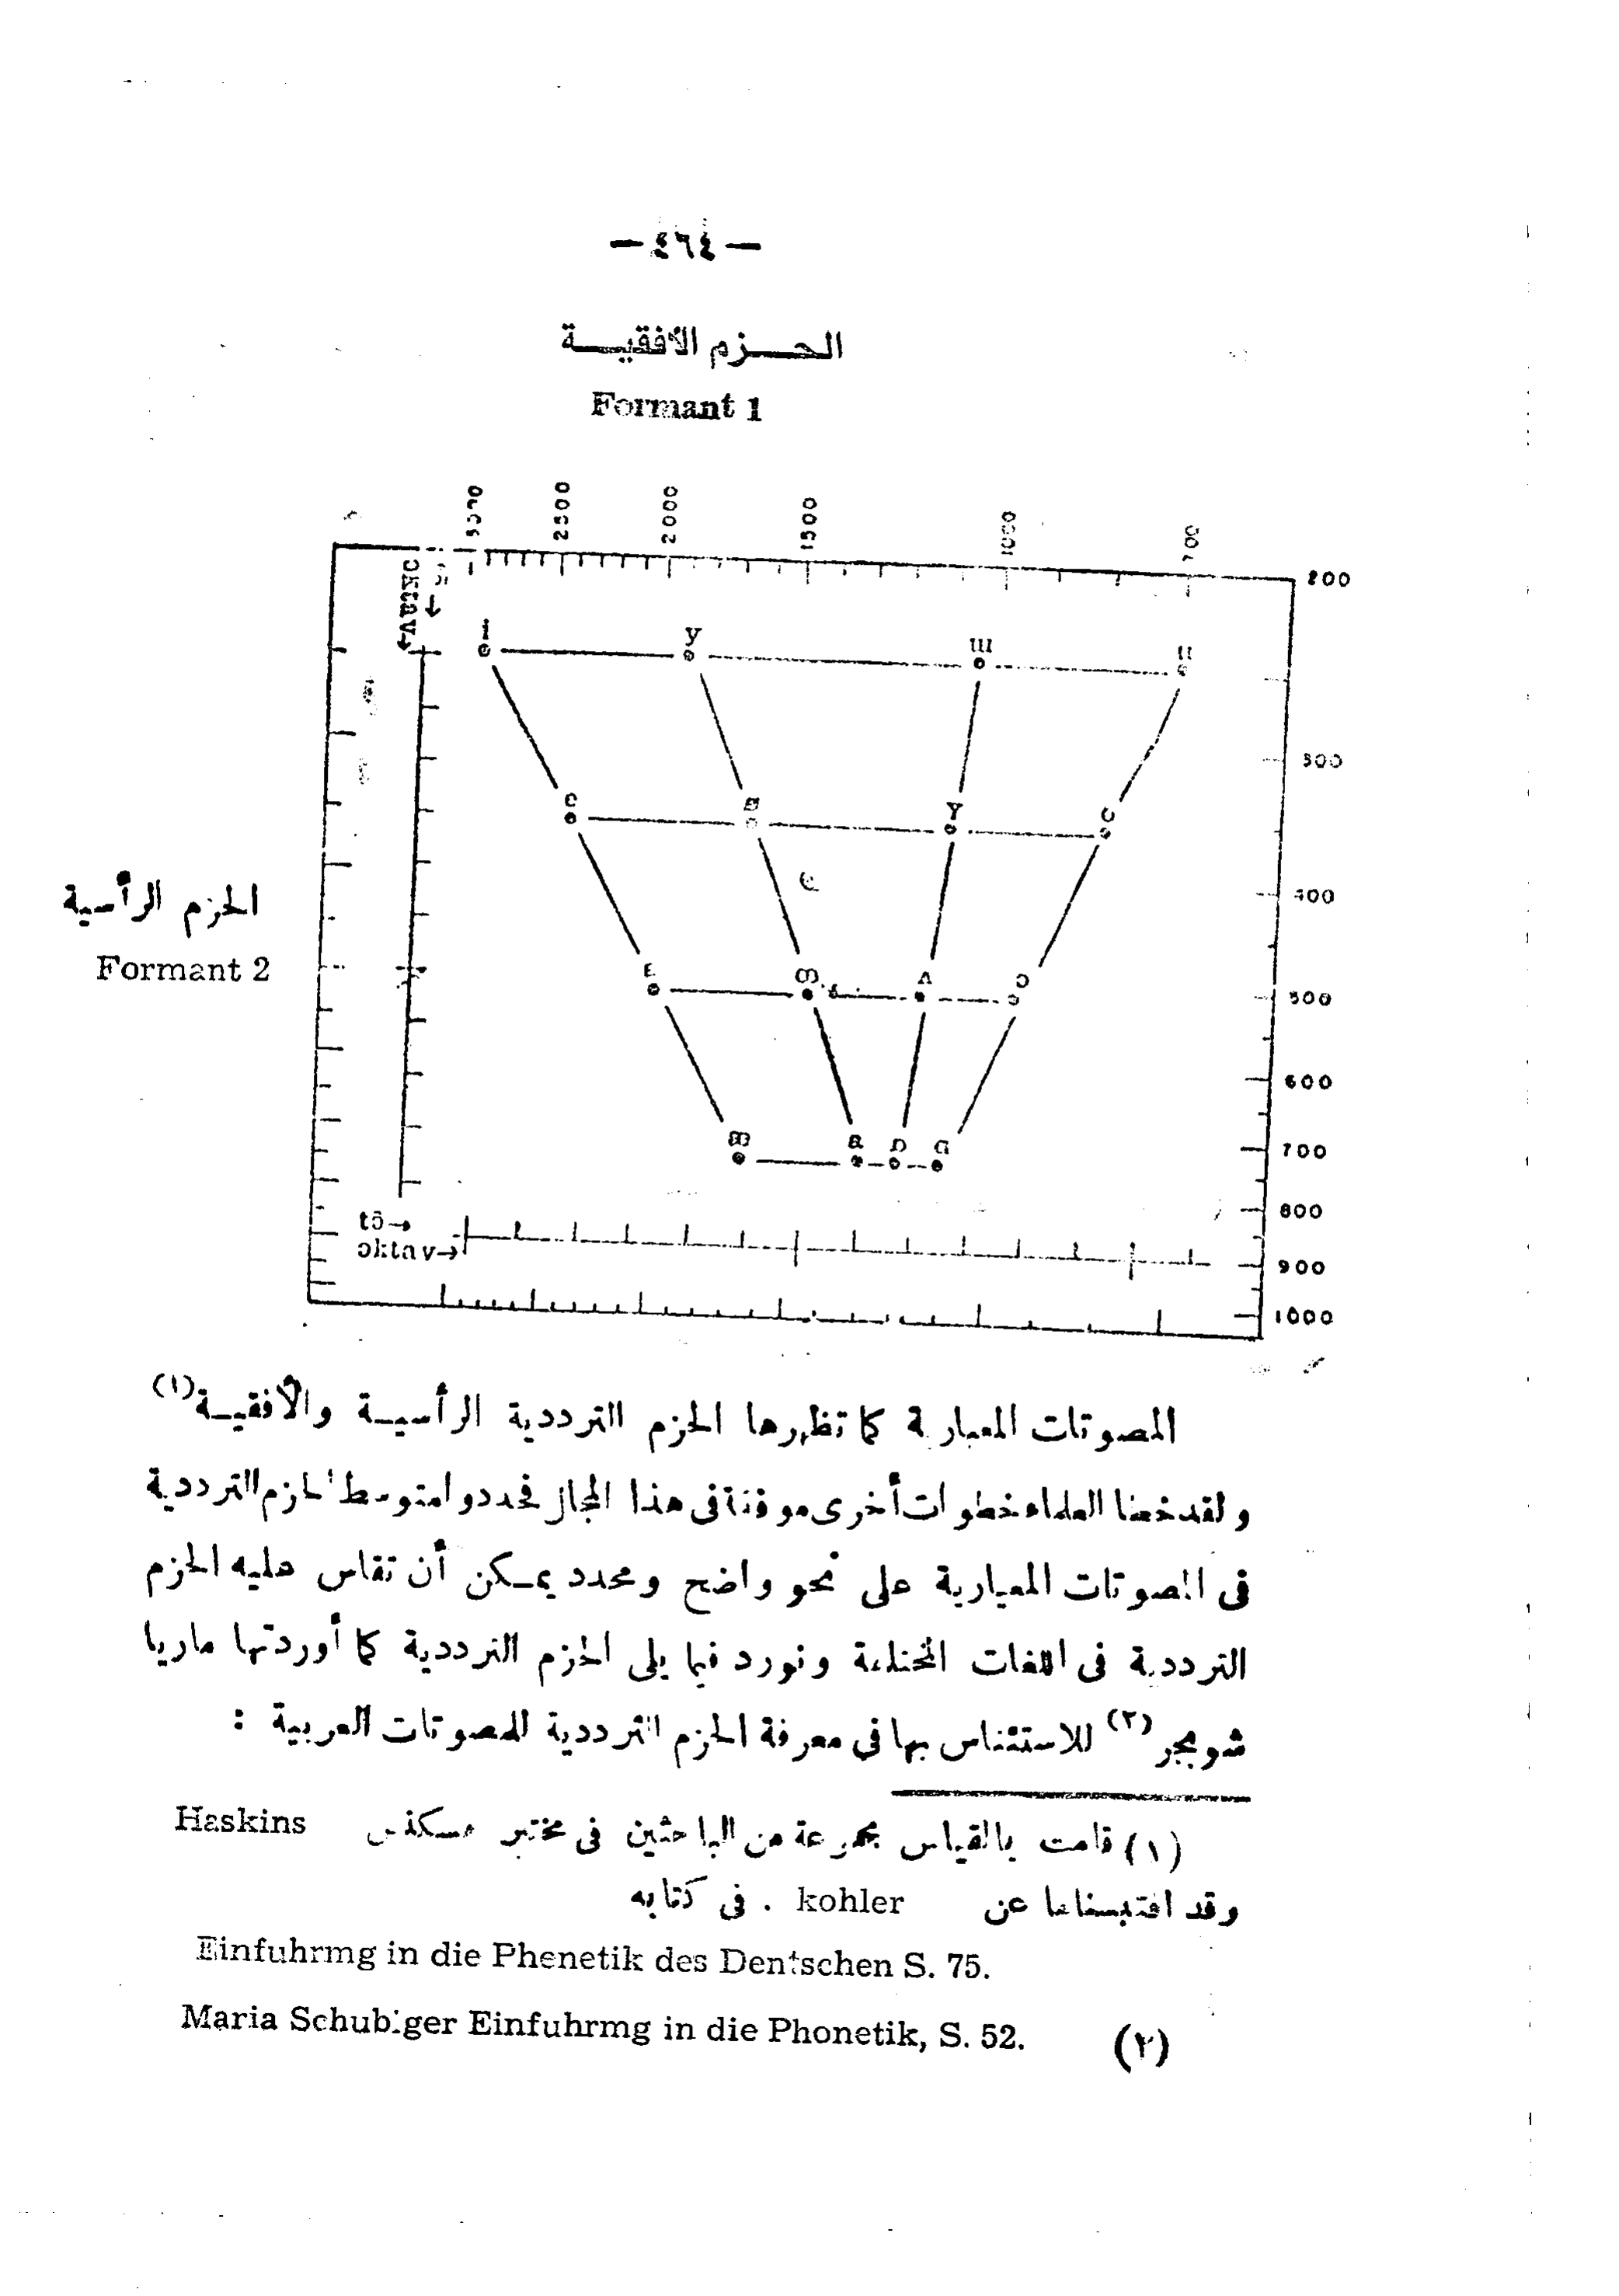 — ٤٦٤ —
الحـــزم الأفقيـــة
Formant 1
2500 2000 1500 1000 700
200
i y ɯ u
300
e ø ɤ o
ə
400
الحزم الرأسية
Formant 2
ɛ œ ʌ ɔ
500
600
æ a ɒ ɑ
700
800
oktav→
900
1000
المصوتات المعيارية كما تظهرها الحزم الترددية الرأسيــة والأفقيــة(١)
ولقد خطا العلماء خطوات أخرى موفقة فى هذا المجال فحددوا متوسط الحزم الترددية
فى المصوتات المعيارية على نحو واضح ومحدد يمــكن أن تقاس عليه الحزم
الترددية فى اللغات المختلفة ونورد فيما يلى الحزم الترددية كما أوردتها ماريا
شوبجر(٢) للاستئناس بها في معرفة الحزم الترددية للمصوتات العربية :
(١) قامت بالقياس مجموعة من الباحثين فى مختبر هسكنس Haskins
وقد اقتبسناها عن kohler . فى كتابه
Einfuhrmg in die Phenetik des Dentschen S. 75.
(٢) Maria Schubiger Einfuhrmg in die Phonetik, S. 52.